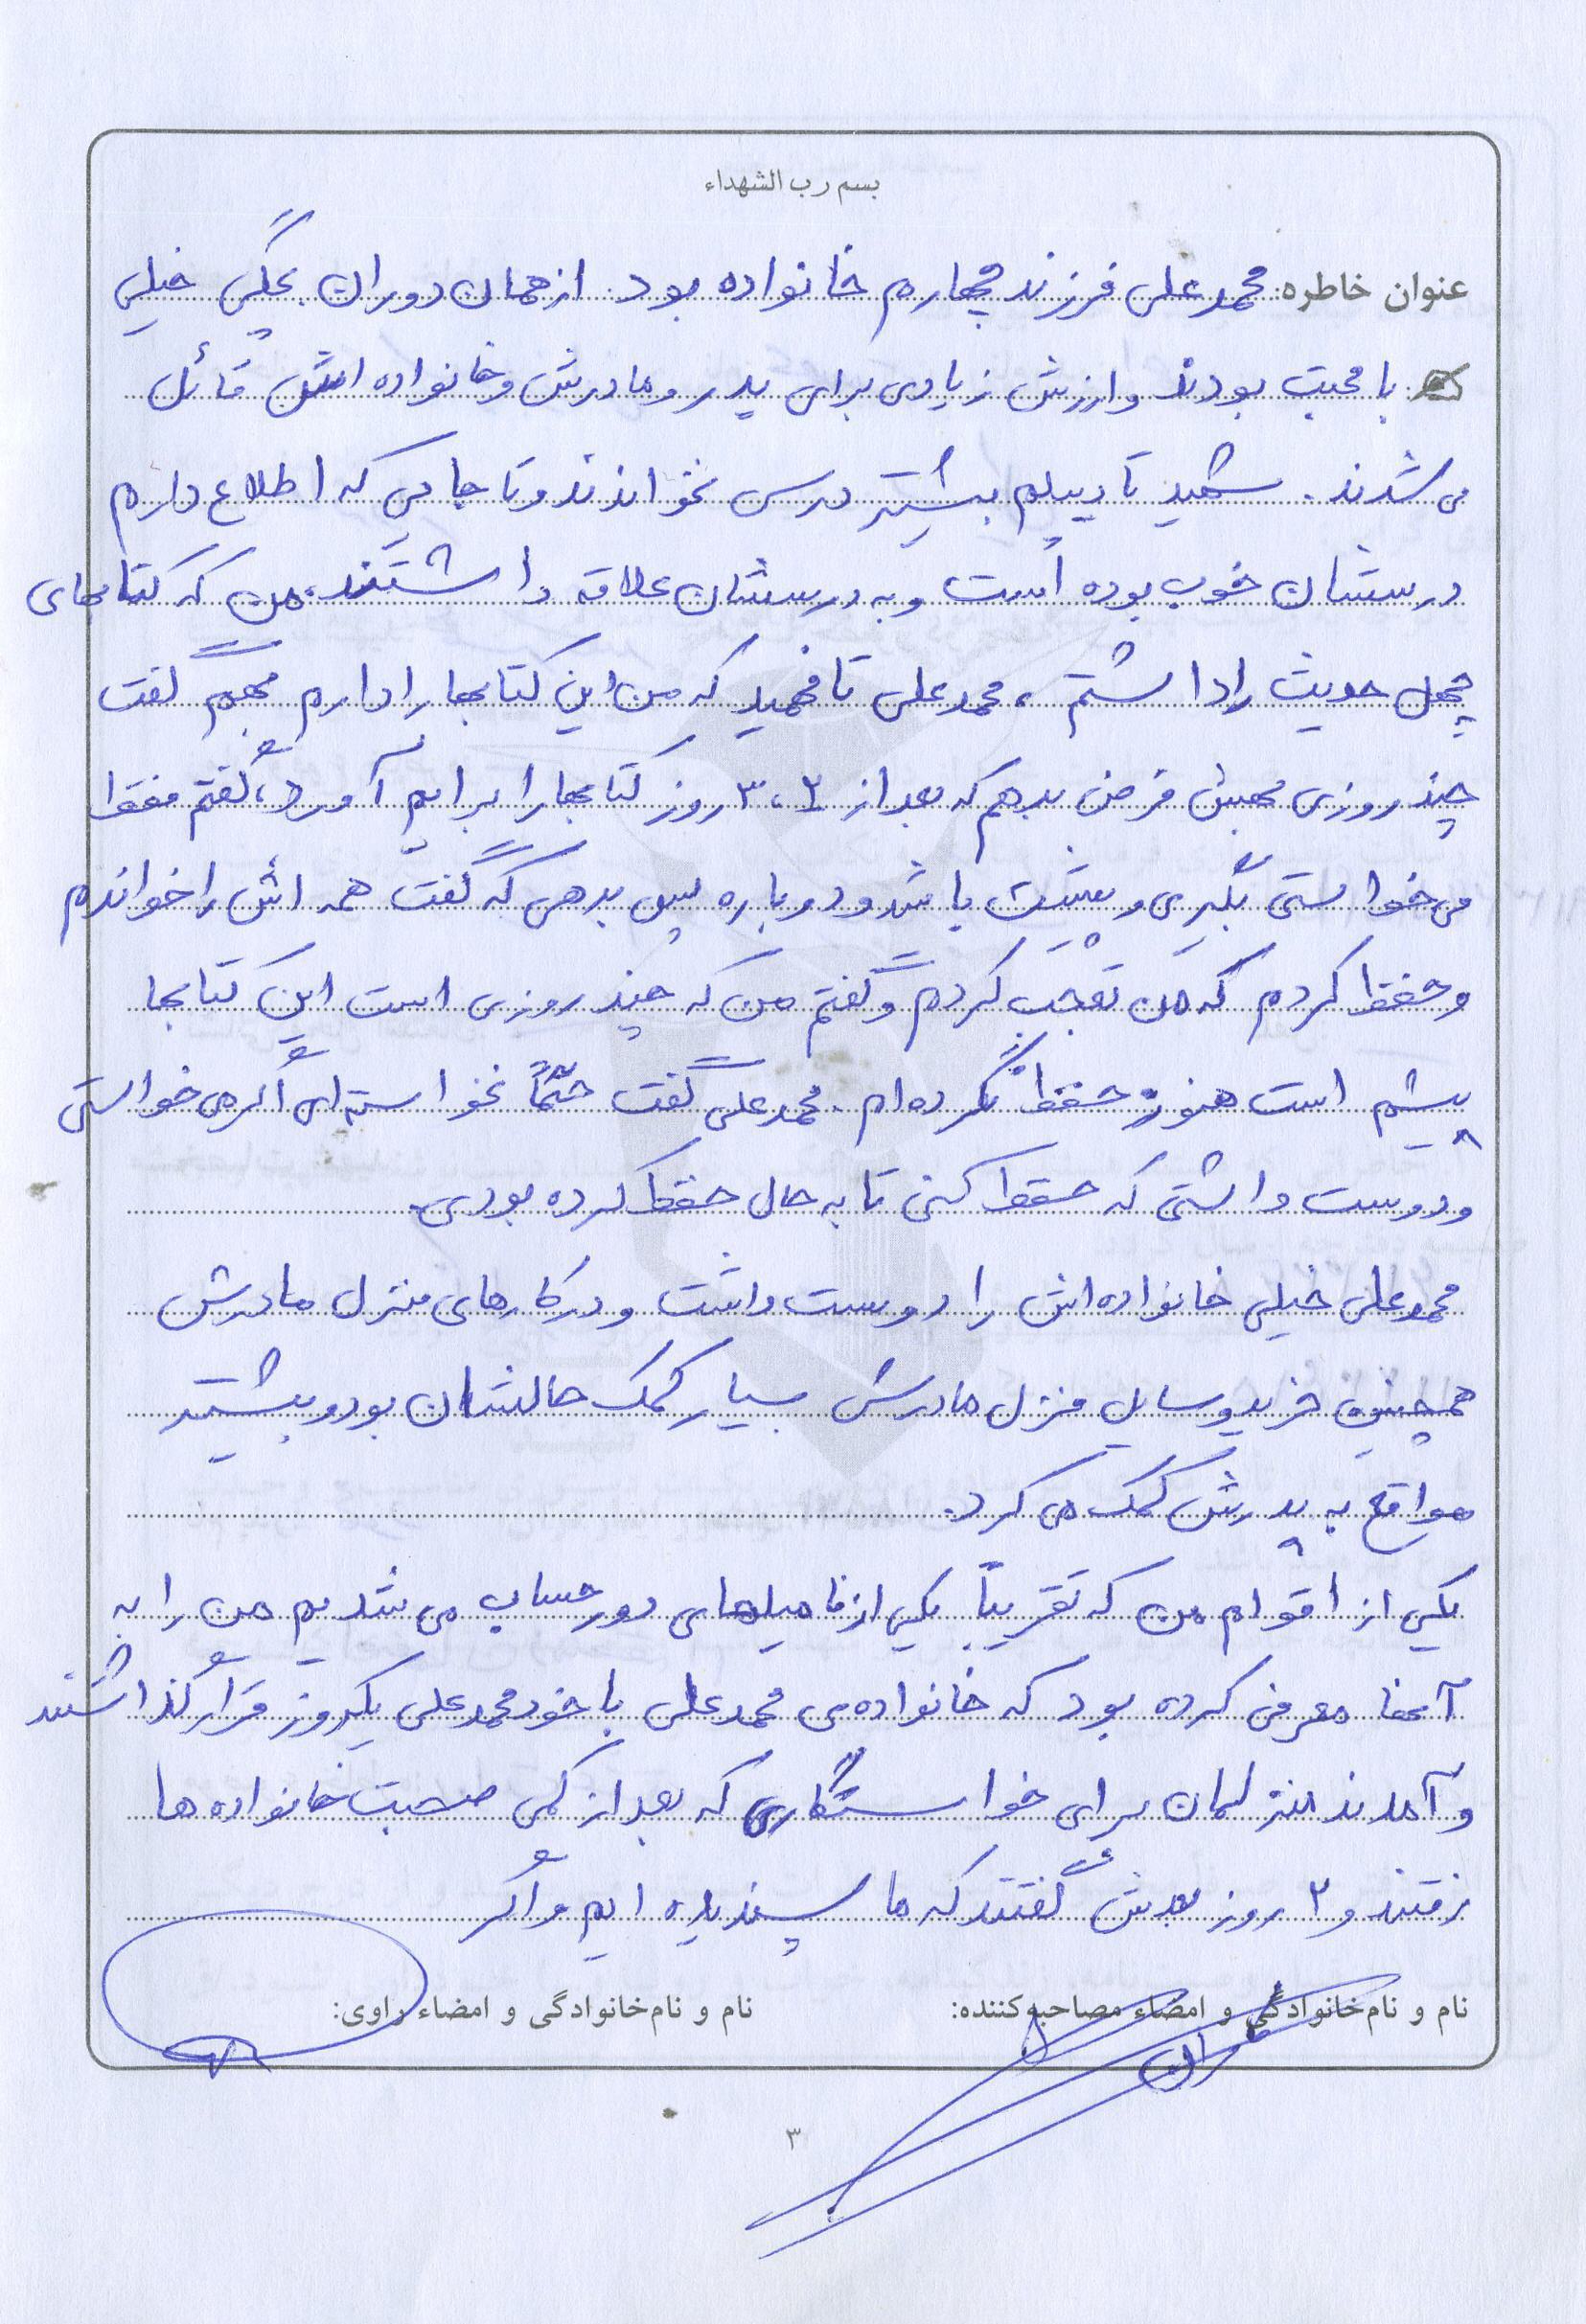 بسم رب الشهداء
عنوان خاطره: محمدعلی فرزند چهارم خانواده بود. از همان دوران بچگی خیلی
با محبت بودند و ارزش زیادی برای پدر و مادرش و خانواده اش قائل
می شدند. شهید تا دیپلم بیشتر درس نخواندند و تا جایی که اطلاع دارم
درسشان خوب بوده است و به درسشان علاقه داشتند. من که کتابهای
چهل حدیث را داشتم، محمدعلی تا فهمید که من این کتابها را دارم بهم گفت
چند روزی بهش قرض بدهم که بعد از ۲، ۳ روز کتابها را برایم آورد، گفتم فقط
می خواستی بگیری و پیشت باشد و دوباره پس بدهی که گفت همه اش را خواندم
و حفظ کردم که من تعجب کردم و گفتم من که چند روزی است این کتابها
پیشم است هنوز حفظ نکرده ام. محمدعلی گفت حتماً نخواسته ای اگر می خواستی
و دوست داشتی که حفظ کنی تا به حال حفظ کرده بودی.
محمدعلی خیلی خانواده اش را دوست داشت و در کارهای منزل مادرش
همچنین خرید وسایل منزل مادرش بسیار کمک حالشان بود و بیشتر
مواقع به پدرش کمک می کرد.
یکی از اقوام من که تقریباً یکی از فامیلهای دور حساب می شدیم من را به
آنها معرفی کرده بود که خانواده ی محمدعلی با خود محمدعلی یکروز قرار گذاشتند
و آمدند منزلمان برای خواستگاری که بعد از کمی صحبت خانواده ها
رفتند و ۲ روز بعدش گفتند که ما پسندیده ایم و اگر
نام و نام‌خانوادگی و امضاء مصاحبه‌کننده: نام و نام‌خانوادگی و امضاء راوی:
۳